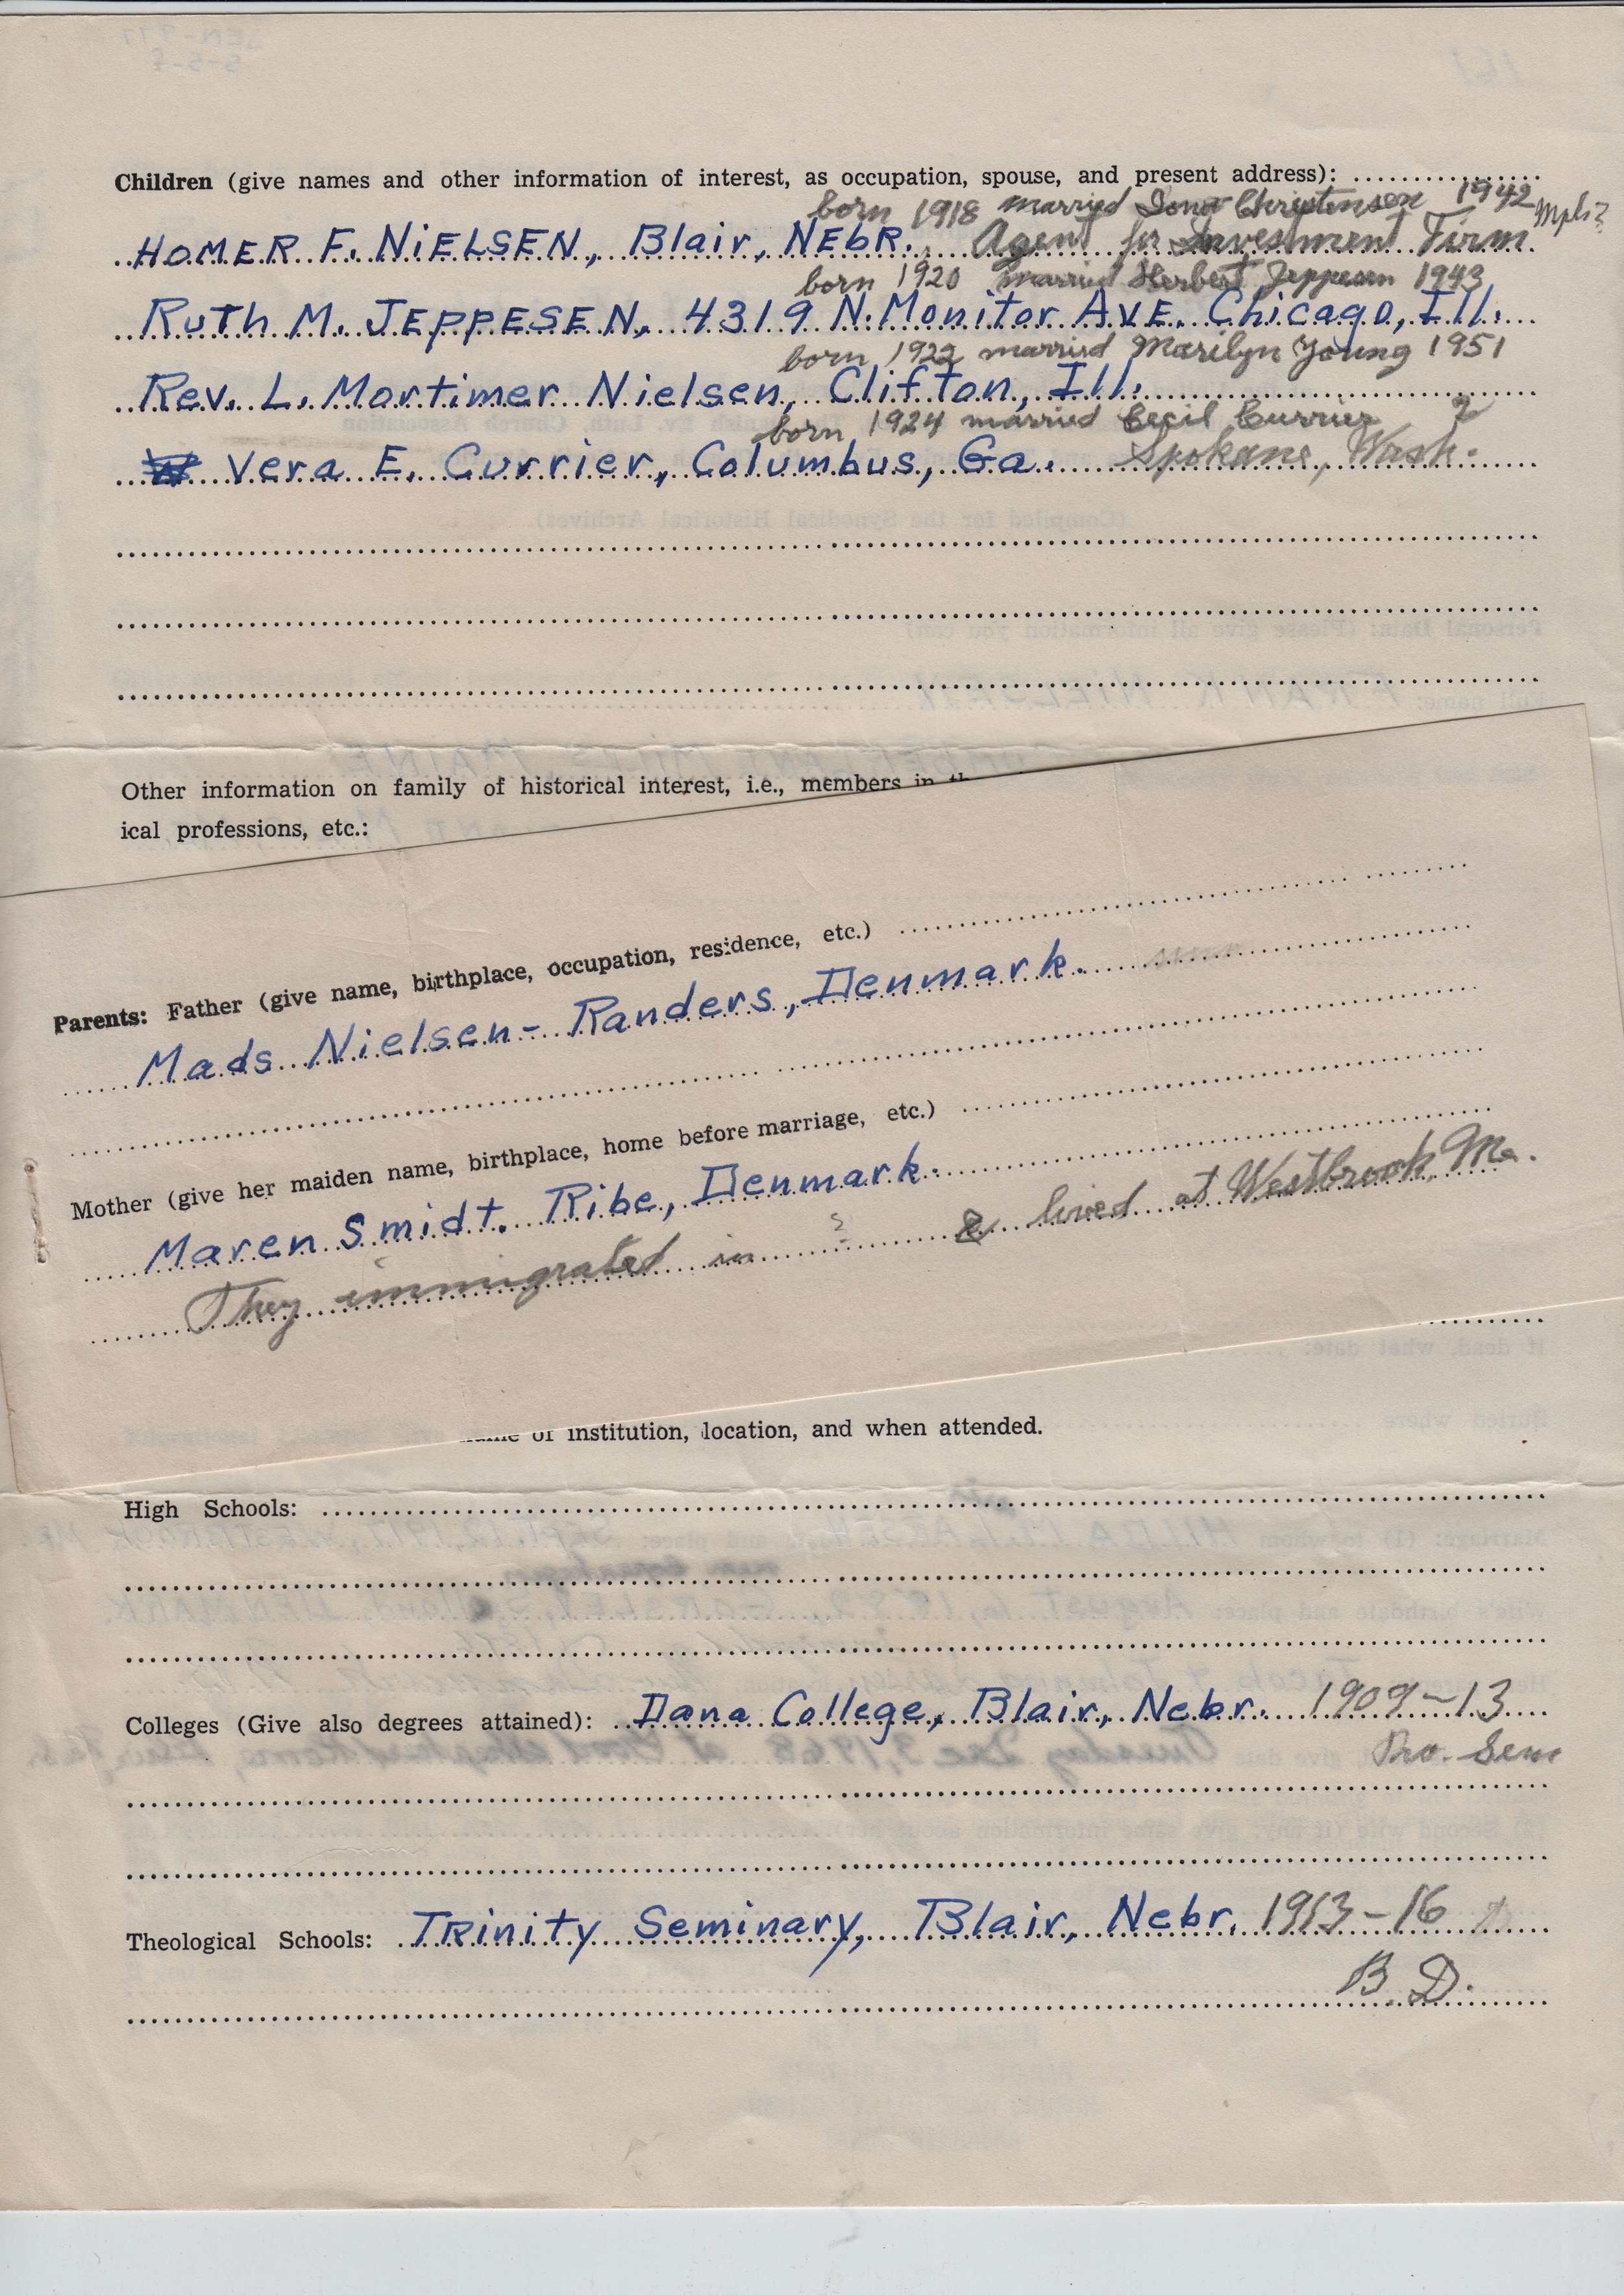 Children (give names and other information of interest, as occupation, spouse, and present address): ..................
born 1918 married Iona Christensen 1942 Mpls?
HOMER F. NIELSEN, Blair, NEbR. Agent for Investment Firm
born 1920 married Herbert Jeppesen 1943
RuTh M. JEPPESEN, 4319 N. Monitor AVE. Chicago, Ill.
born 1922 married Marilyn Young 1951
Rev. L. Mortimer Nielsen, Clifton, Ill.
born 1924 married Cecil Currier ?
Vera E. Currier, Columbus, Ga. Spokane, Wash.
Other information on family of historical interest, i.e., members in
ical professions, etc.:
Parents: Father (give name, birthplace, occupation, residence, etc.)
Mads Nielsen - Randers, Denmark.
Mother (give her maiden name, birthplace, home before marriage, etc.)
Maren Smidt. Ribe, Denmark.
They immigrated in ? & lived at Westbrook, Me.
of institution, location, and when attended.
High Schools:
Colleges (Give also degrees attained): Dana College, Blair, Nebr. 1909-13
Pro. Sem
Theological Schools: TRinity Seminary, Blair, Nebr. 1913-16
B.D.